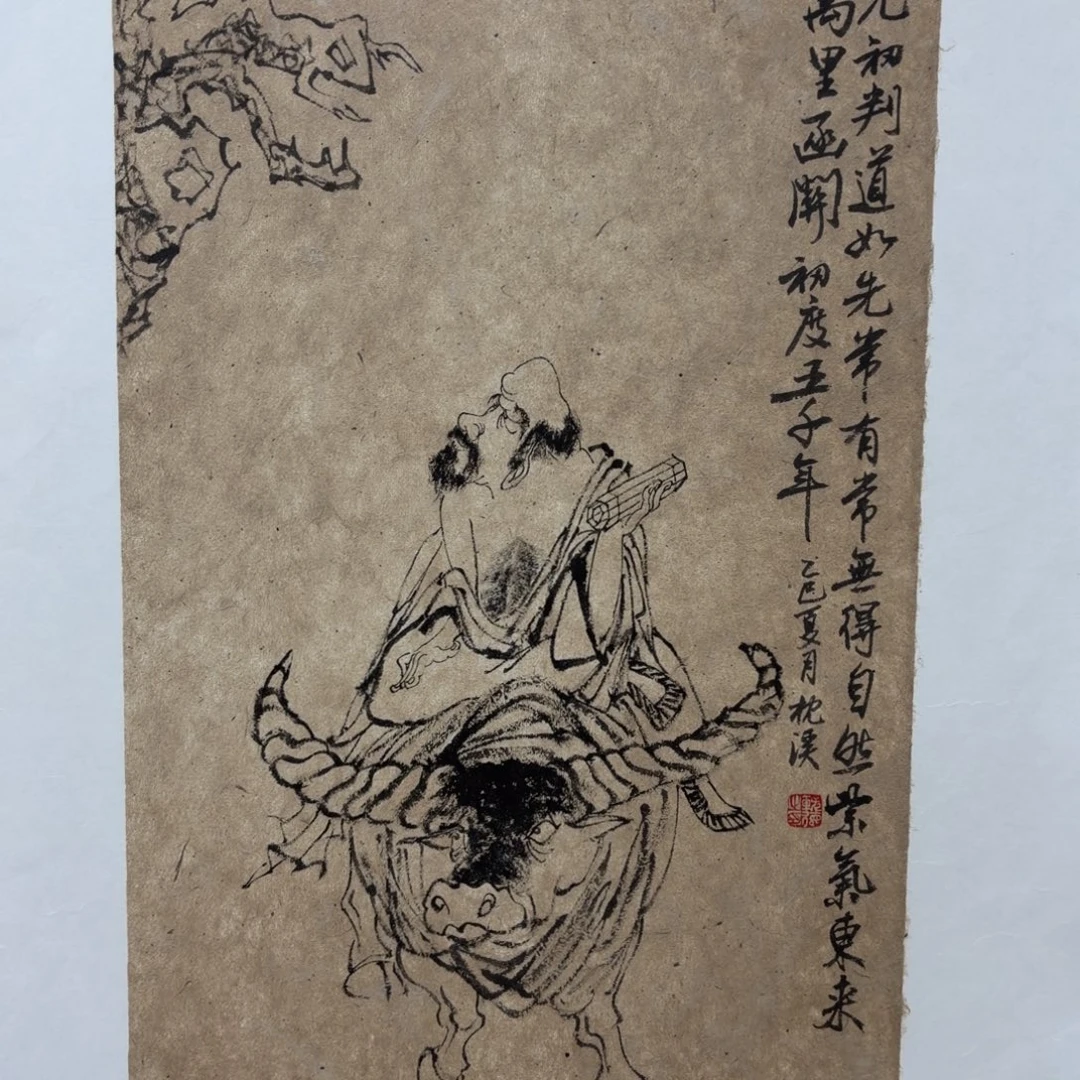 初判道如先常有常無得自然紫氣東来
萬里函關初度五千年
乙巳夏月枕溪